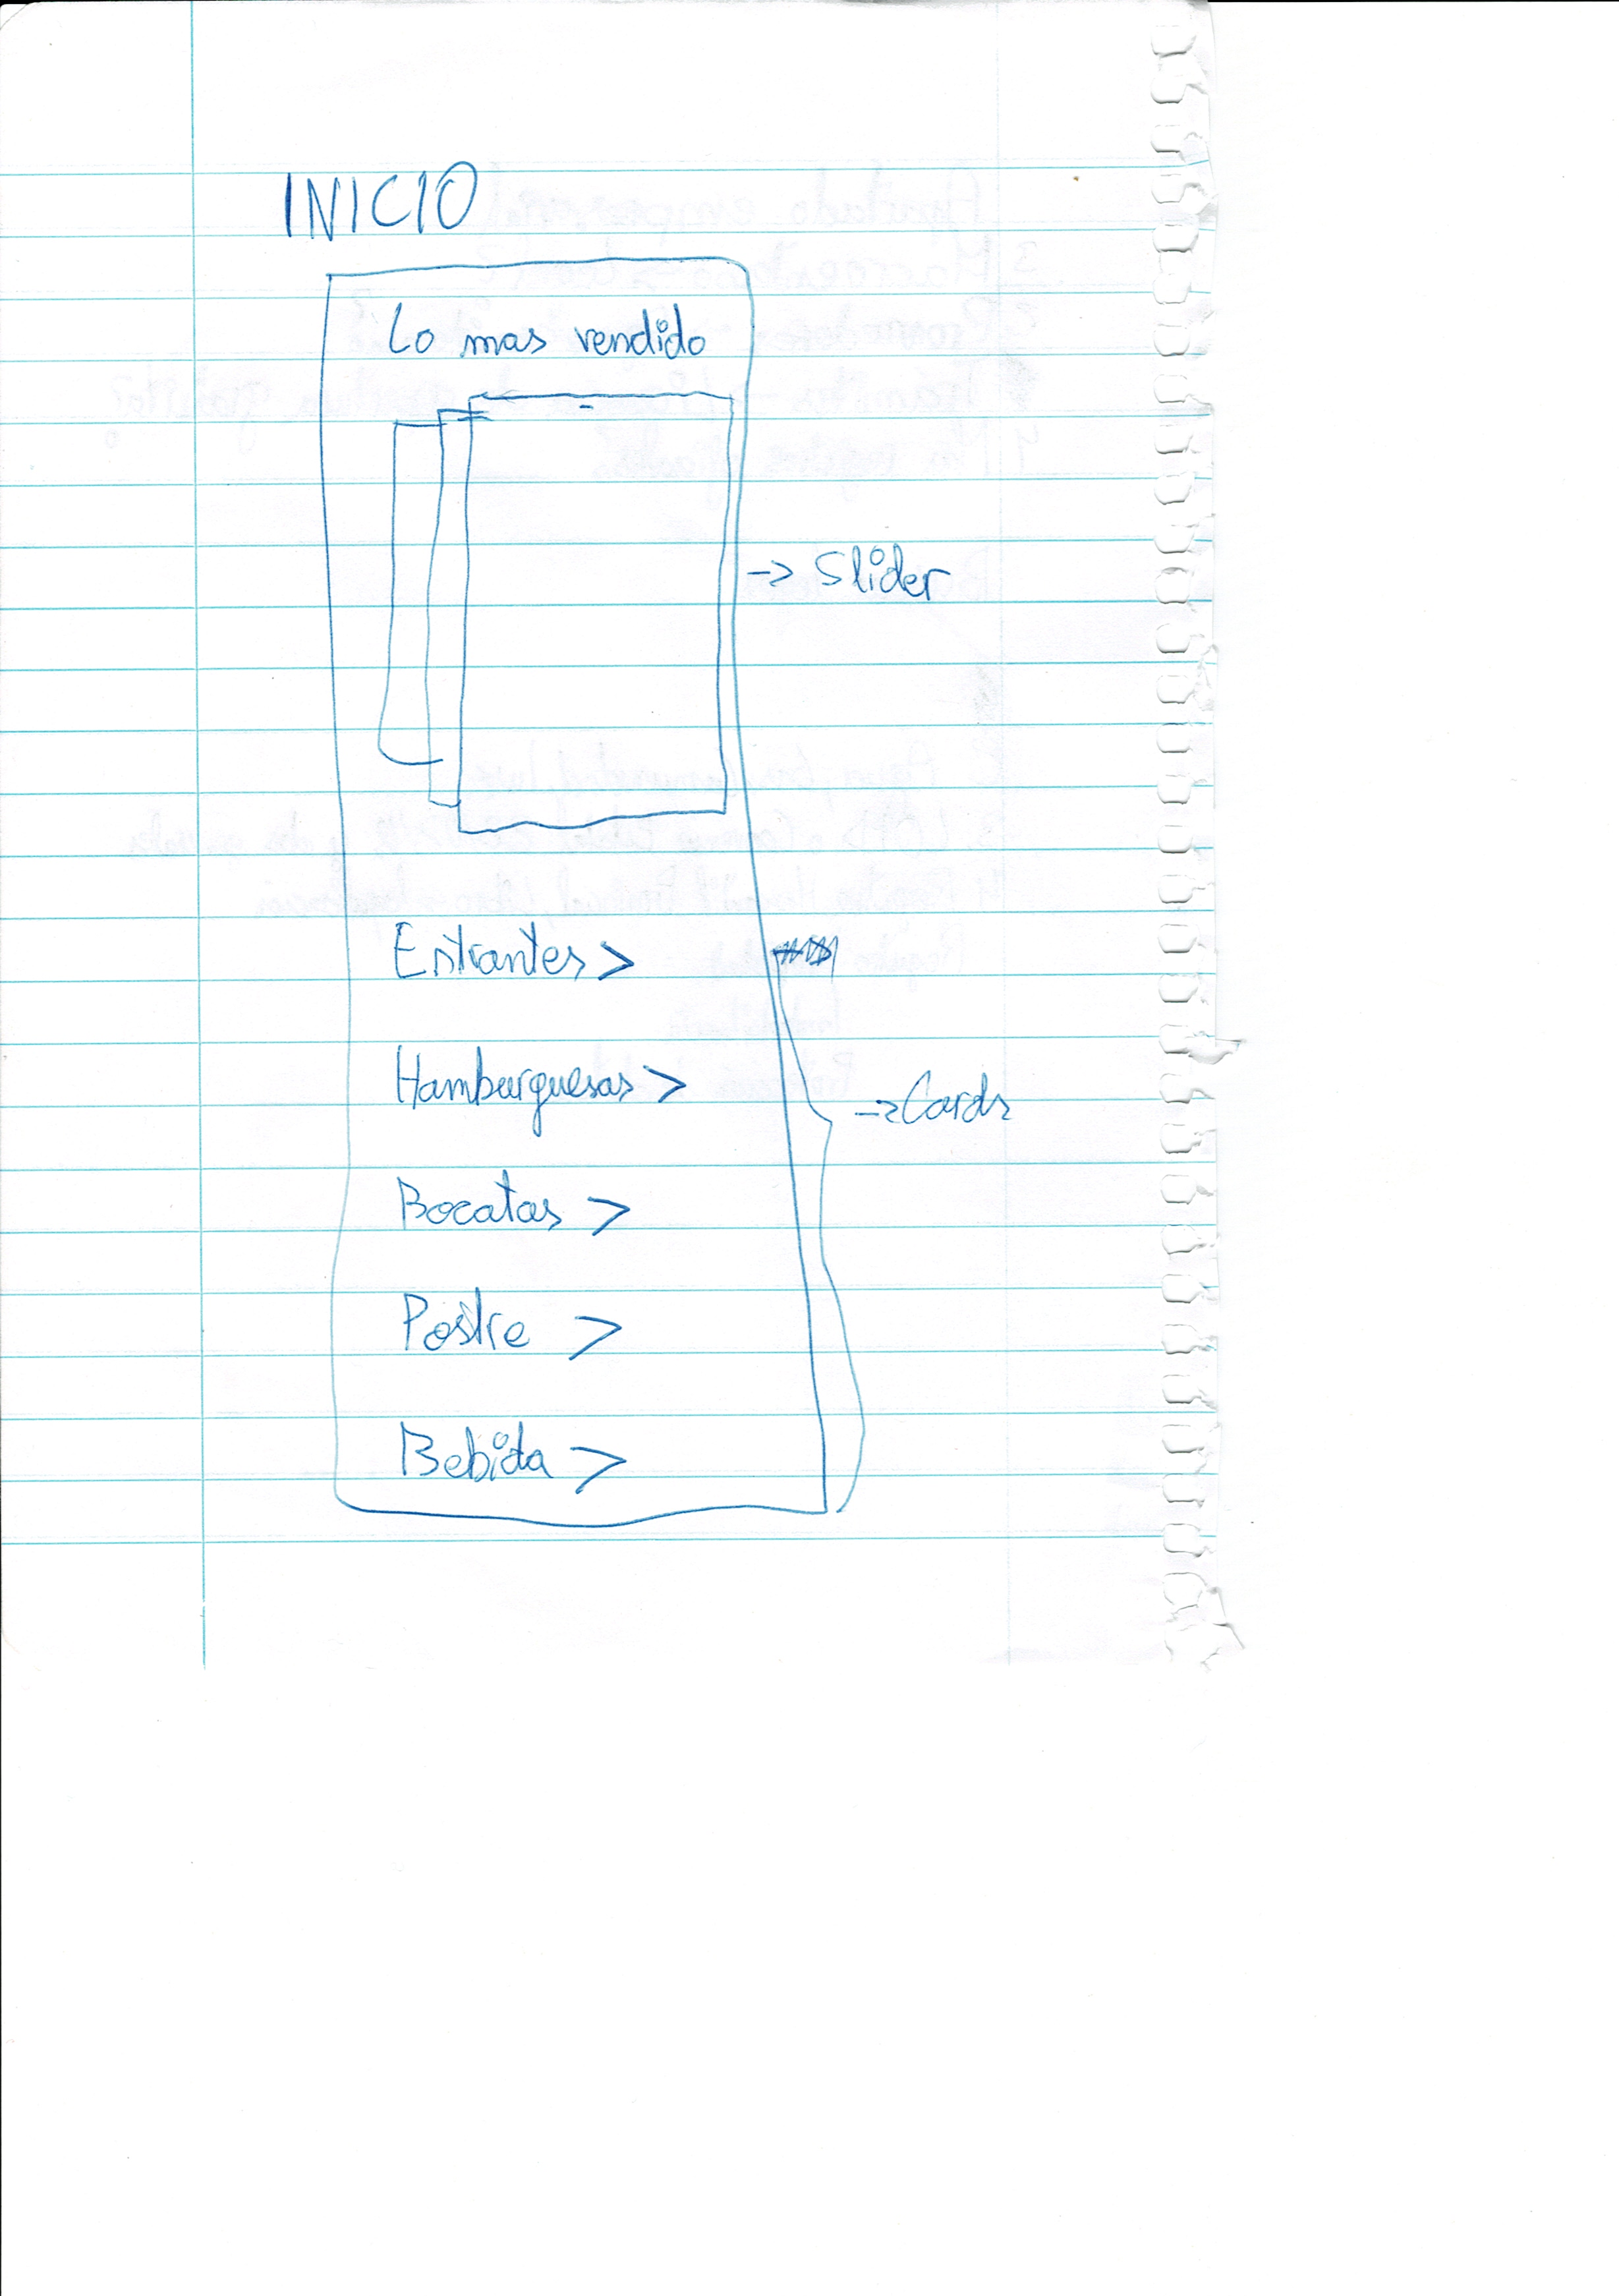 INICIO
Lo mas vendido
-> Slider
Entrantes >
Hamburguesas >
-> Cards
Bocatas >
Postre >
Bebida >